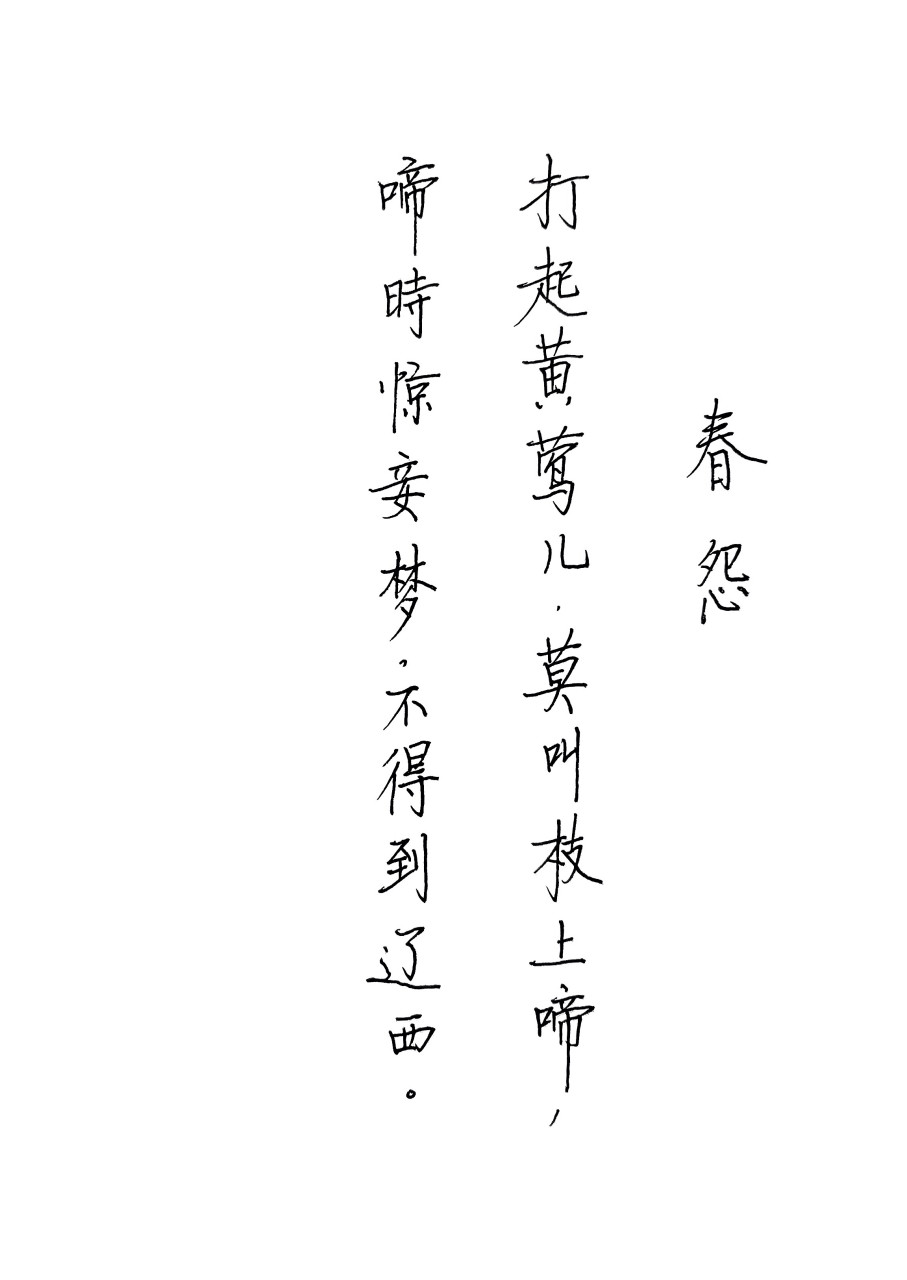 春怨
打起黄莺儿，莫叫枝上啼，
啼時惊妾梦，不得到辽西。